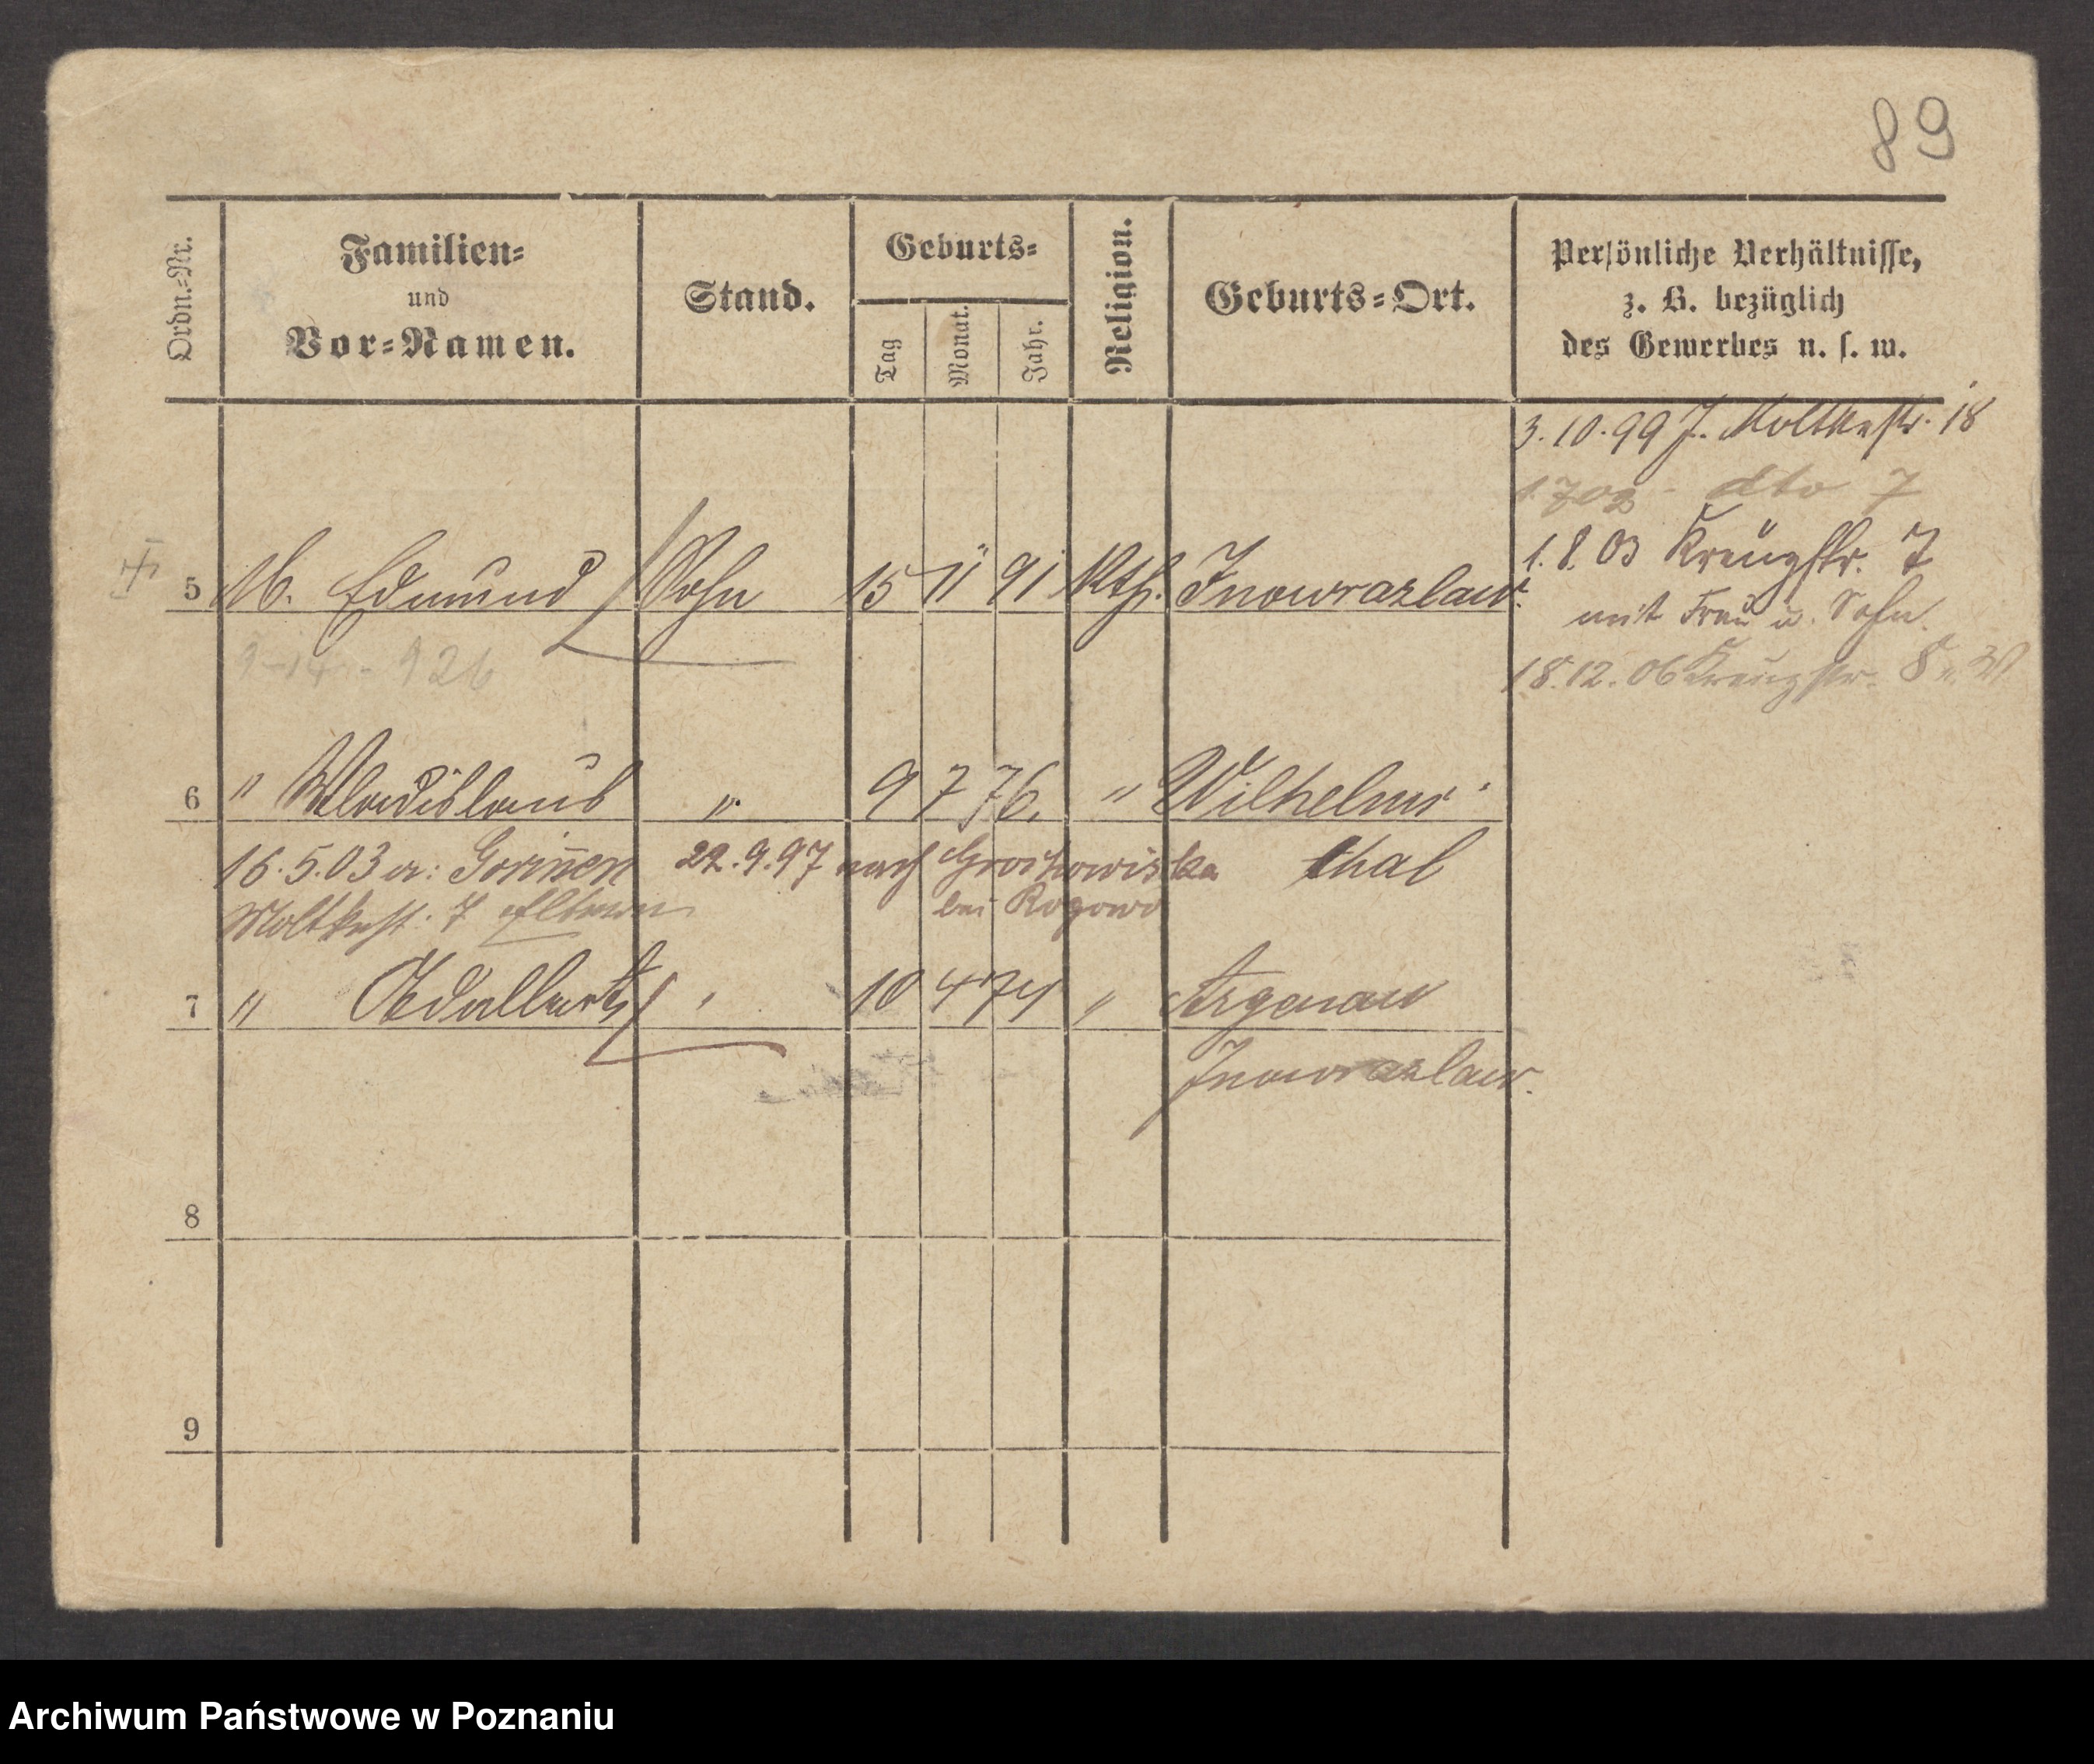 89
Ordn.-Nr.
Familien-
und
Vor-Namen.
Stand.
Geburts-
Tag
Monat.
Jahr.
Religion.
Geburts-Ort.
Persönliche Verhältnisse,
z. B. bezüglich
des Gewerbes u. s. w.
3.10.99 J. Moltkestr. 18
1.7.02 - dto 7
1.8.03 Kreuzstr. 7
mit Frau u. Sohn.
18.12.06 Kreuzstr. 8
5 M. Edmund Sohn 15 11 91 Kth. Inowrazlaw.
6 " Wladislaus " 9 7 76. " Wilhelms-
thal
16.5.03 a:
22.9.97 nach Grochowiska
bei Rogowo
Moltkestr. 7 Eltern
7 " Adalbert " 10 4 74 " Argenau
Inowrazlaw.
8
9
Archiwum Państwowe w Poznaniu